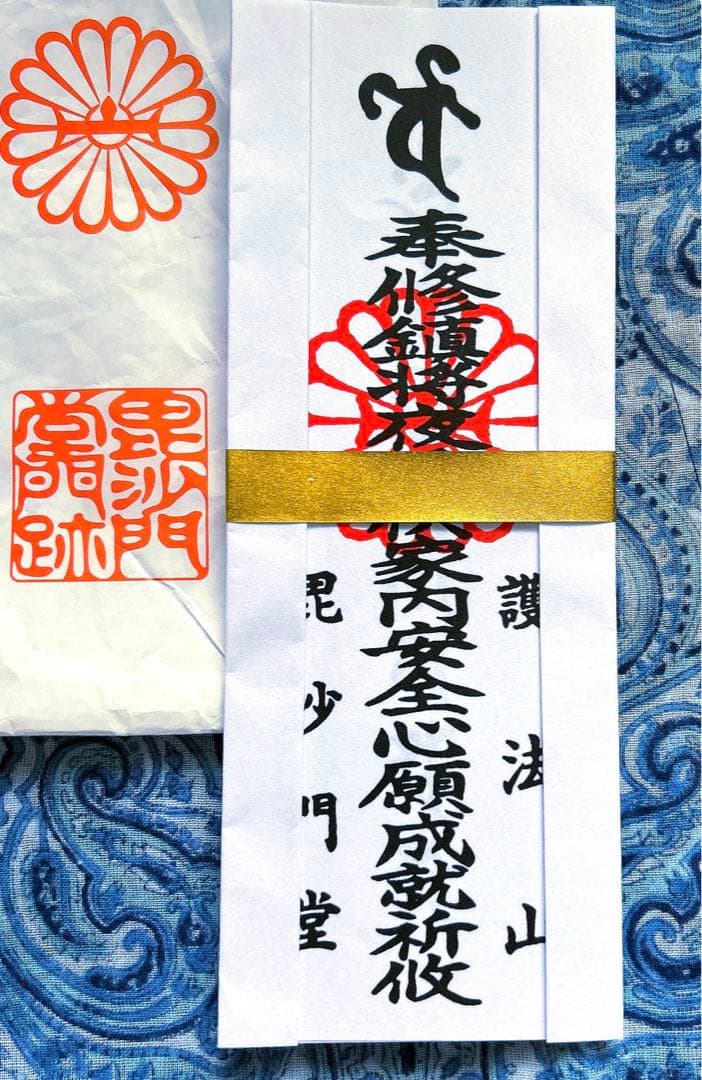 護法山
奉修鎮将夜
家内安全心願成就祈攸
毘沙門堂
毘沙門
堂門跡